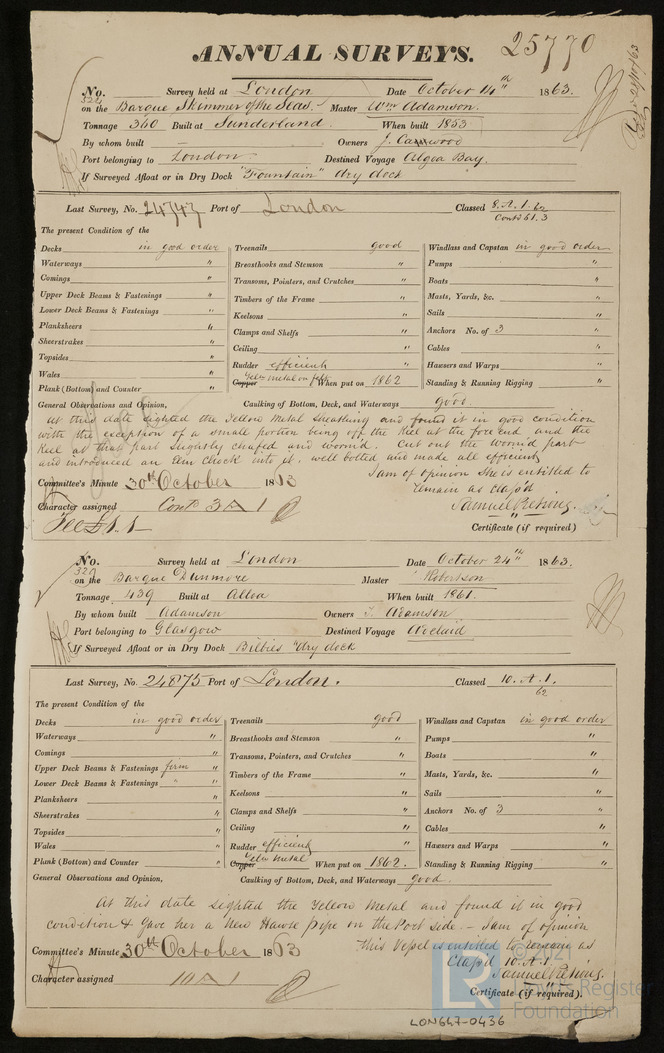 ANNUAL SURVEYS. 25770
No. 324 Survey held at London Date October 14th 1863.
on the Barque Skimmer of the Seas. Master Wm Adamson.
Tonnage 340 Built at Sunderland. When built 1853
By whom built — Owners J.
Port belonging to London Destined Voyage Algoa Bay.
If Surveyed Afloat or in Dry Dock "Fountain" dry dock
Last Survey, No. 24747 Port of London Classed 8. A. 1. 62
Contd 61. 3
The present Condition of the
Decks in good order Treenails good Windlass and Capstan in good order
Waterways " Breasthooks and Stemson " Pumps "
Comings " Transoms, Pointers, and Crutches " Boats "
Upper Deck Beams & Fastenings " Timbers of the Frame " Masts, Yards, &c. "
Lower Deck Beams & Fastenings " Keelsons " Sails "
Planksheers " Clamps and Shelfs " Anchors No. of 3 "
Sheerstrakes " Ceiling " Cables "
Topsides " Rudder efficient Hawsers and Warps "
Wales " Copper Yellow Metal on felt When put on 1862 Standing & Running Rigging "
Plank (Bottom) and Counter "
General Observations and Opinion, Caulking of Bottom, Deck, and Waterways good
At this date sighted the Yellow Metal Sheathing and found it in good condition
with the exception of a small portion being off the Keel at the fore end and the
Keel at that part slightly chafed and worm'd. Cut out the worm'd part
and introduced an Elm Chock into it. well bolted and made all efficient
I am of opinion She is entitled to
Committee's Minute 30th October 1863 remain as Class'd
Character assigned Contd 3 A 1 Samuel
Fee £1.1— Certificate (if required)
No. 329 Survey held at London Date October 24th 1863.
on the Barque Dunmore Master Robertson
Tonnage 439 Built at Alloa When built 1861.
By whom built Adamson Owners J. Adamson
Port belonging to Glasgow Destined Voyage Adelaid
If Surveyed Afloat or in Dry Dock Bilbies dry dock
Last Survey, No. 24875 Port of London. Classed 10. A. 1.
62.
The present Condition of the
Decks in good order Treenails good Windlass and Capstan in good order
Waterways " Breasthooks and Stemson " Pumps "
Comings " Transoms, Pointers, and Crutches " Boats "
Upper Deck Beams & Fastenings firm " Timbers of the Frame " Masts, Yards, &c. "
Lower Deck Beams & Fastenings " " Keelsons " Sails "
Planksheers " Clamps and Shelfs " Anchors No. of 3 "
Sheerstrakes " Ceiling " Cables "
Topsides " Rudder efficient Hawsers and Warps "
Wales " Copper Yellow Metal When put on 1862. Standing & Running Rigging "
Plank (Bottom) and Counter "
General Observations and Opinion, Caulking of Bottom, Deck, and Waterways good.
At this date sighted the Yellow Metal and found it in good
condition & Gave her a New Hawse pipe on the Port side.— I am of opinion
Committee's Minute 30th October 1863 This Vessel is entitled to remain as
Class'd 10. A. 1.
Character assigned 10 A 1 Samuel
Certificate (if required).
© 2021
LR Lloyd's Register
Foundation
LON647-0436